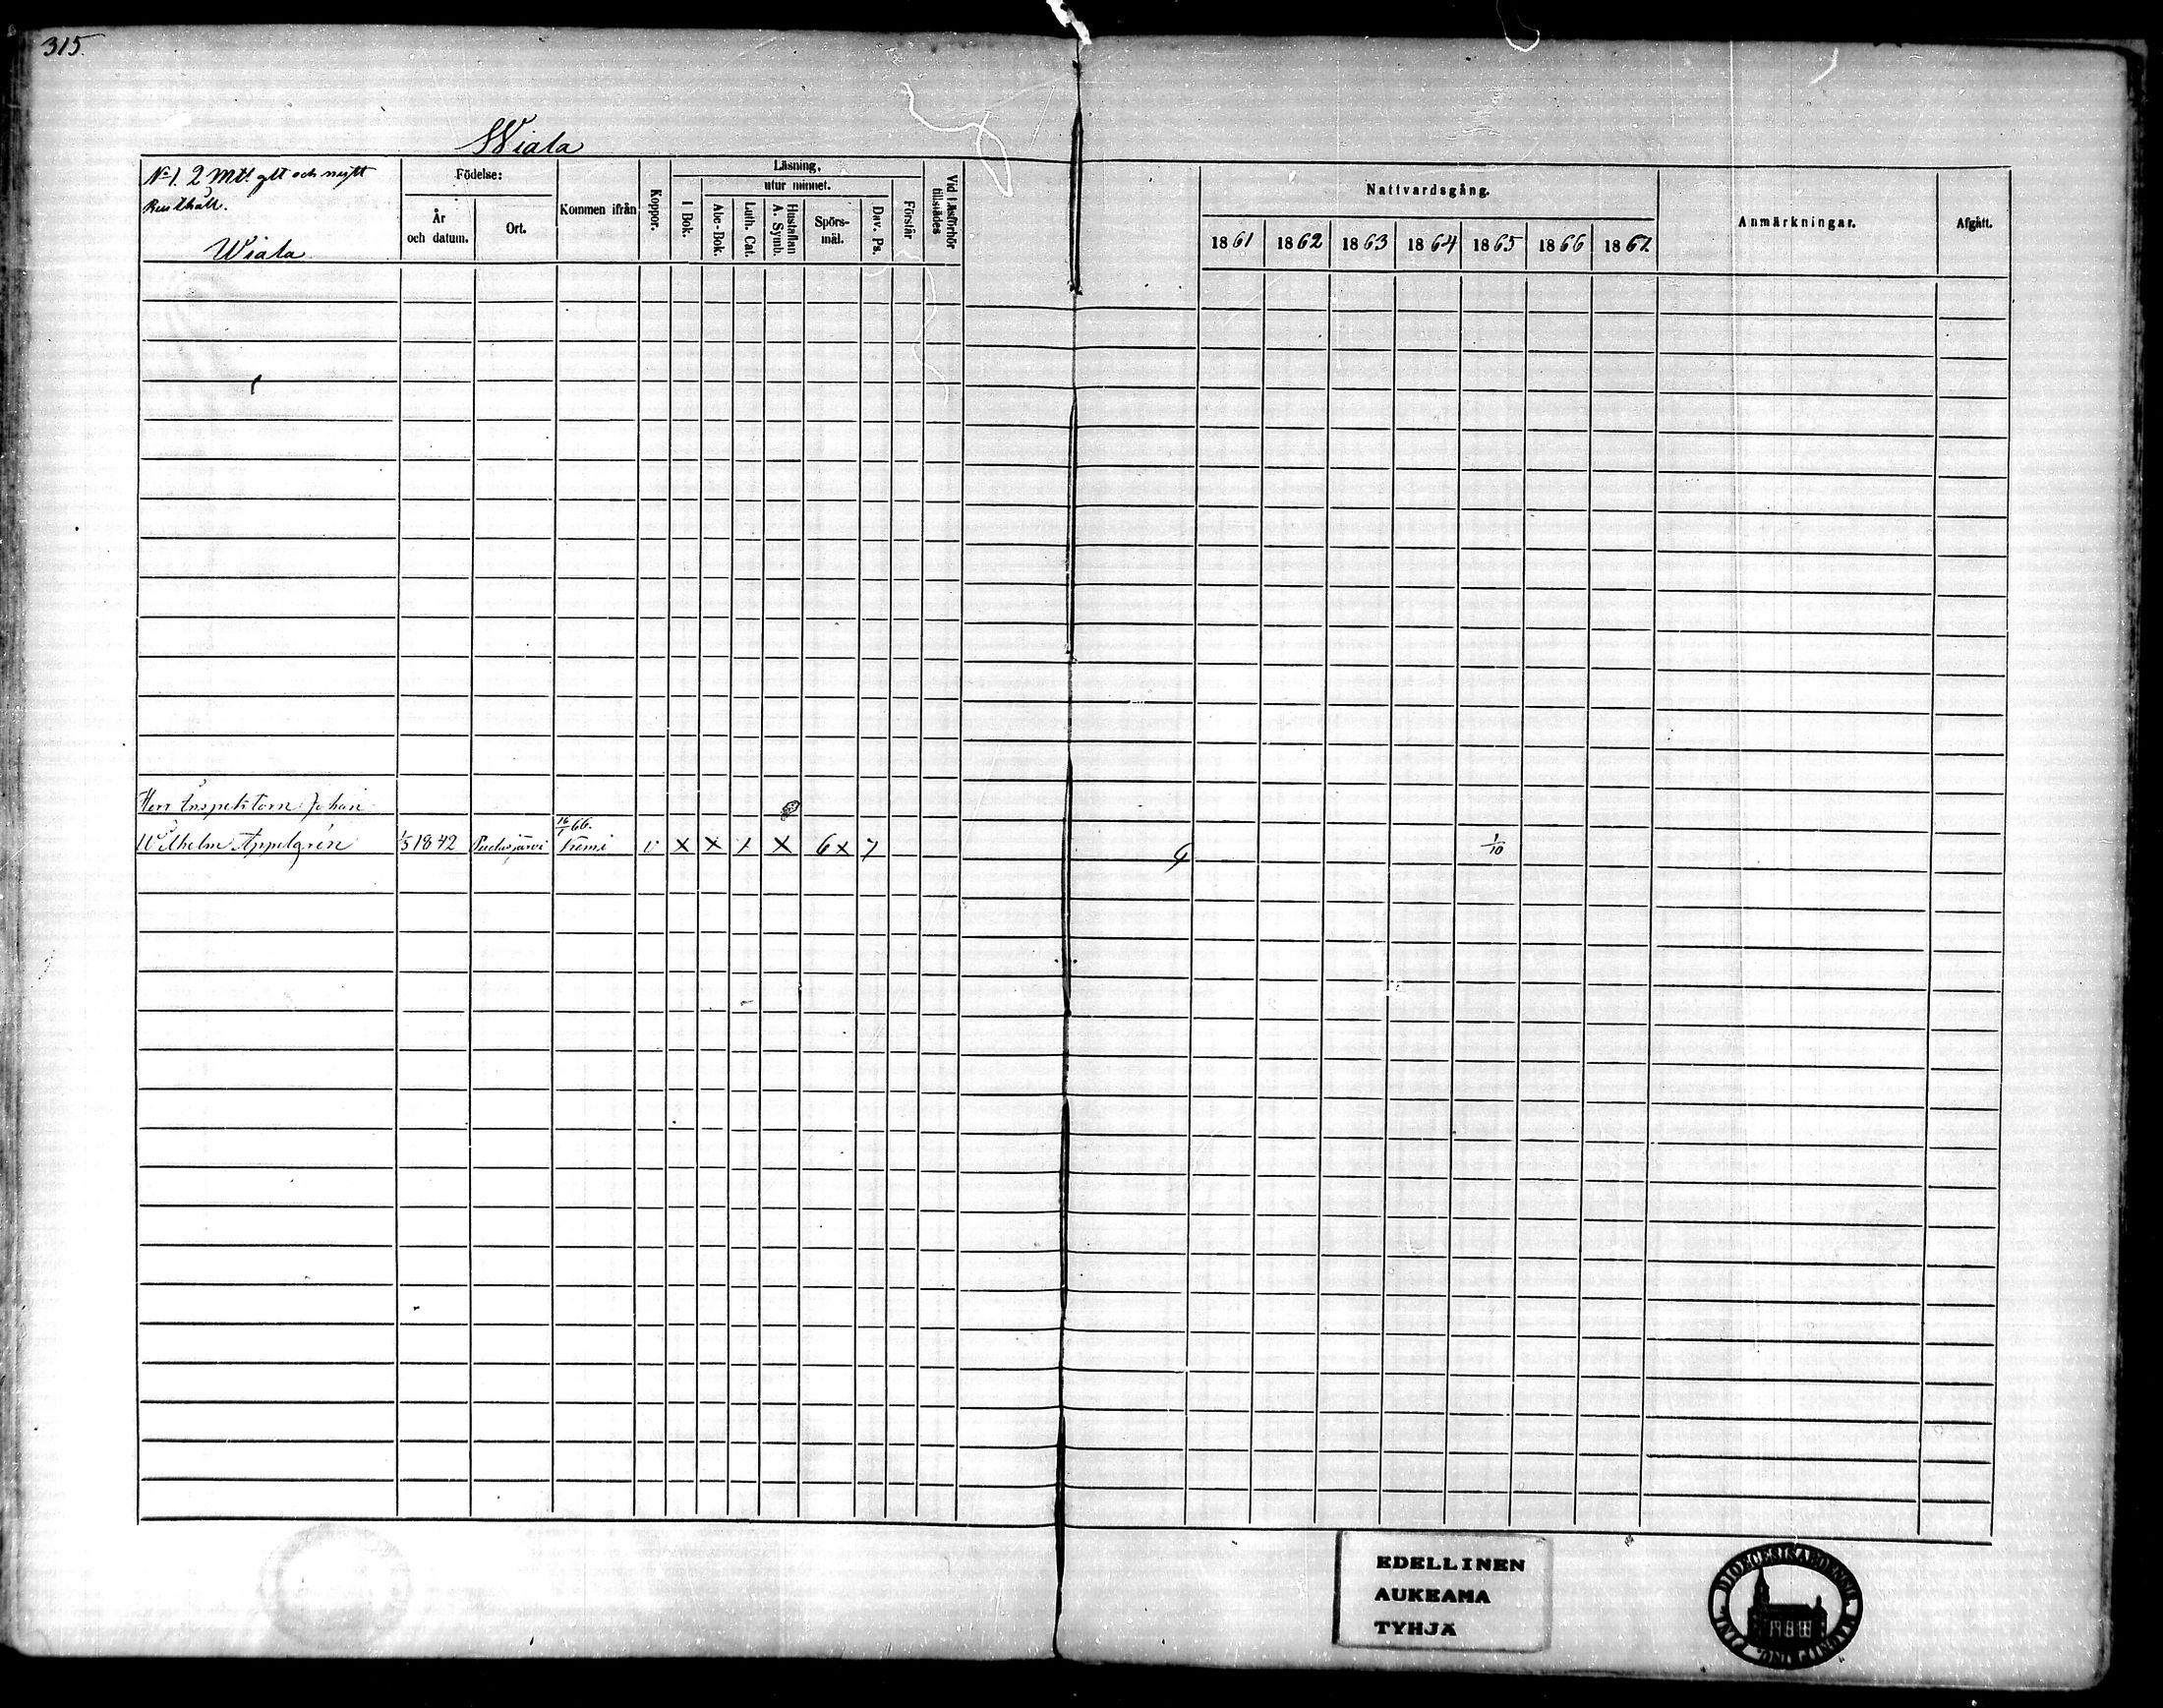 315.
Wiala
No 1. 2 Mtl. glt och nytt
Rusthåll.
Wiala
Födelse:
År
och datum.
Ort.
Kommen ifrån
Koppor.
Läsning,
utur minnet.
I Bok.
Abc-Bok.
Luth. Cat.
Hustaflan
A. Symb.
Spörs-
mål.
Dav. Ps.
Förstår
Vid Läsförhör
tillstädes
Nattvardsgång.
1861 1862 1863 1864 1865 1866 1867.
Anmärkningar.
Afgått.
Herr Inspektorn Johan
16/1 66.
Wilhelm Appelgrén 1/5 1842 Pudasjärvi v x x x x 6 x 7 1/10
EDELLINEN
AUKEAMA
TYHJÄ